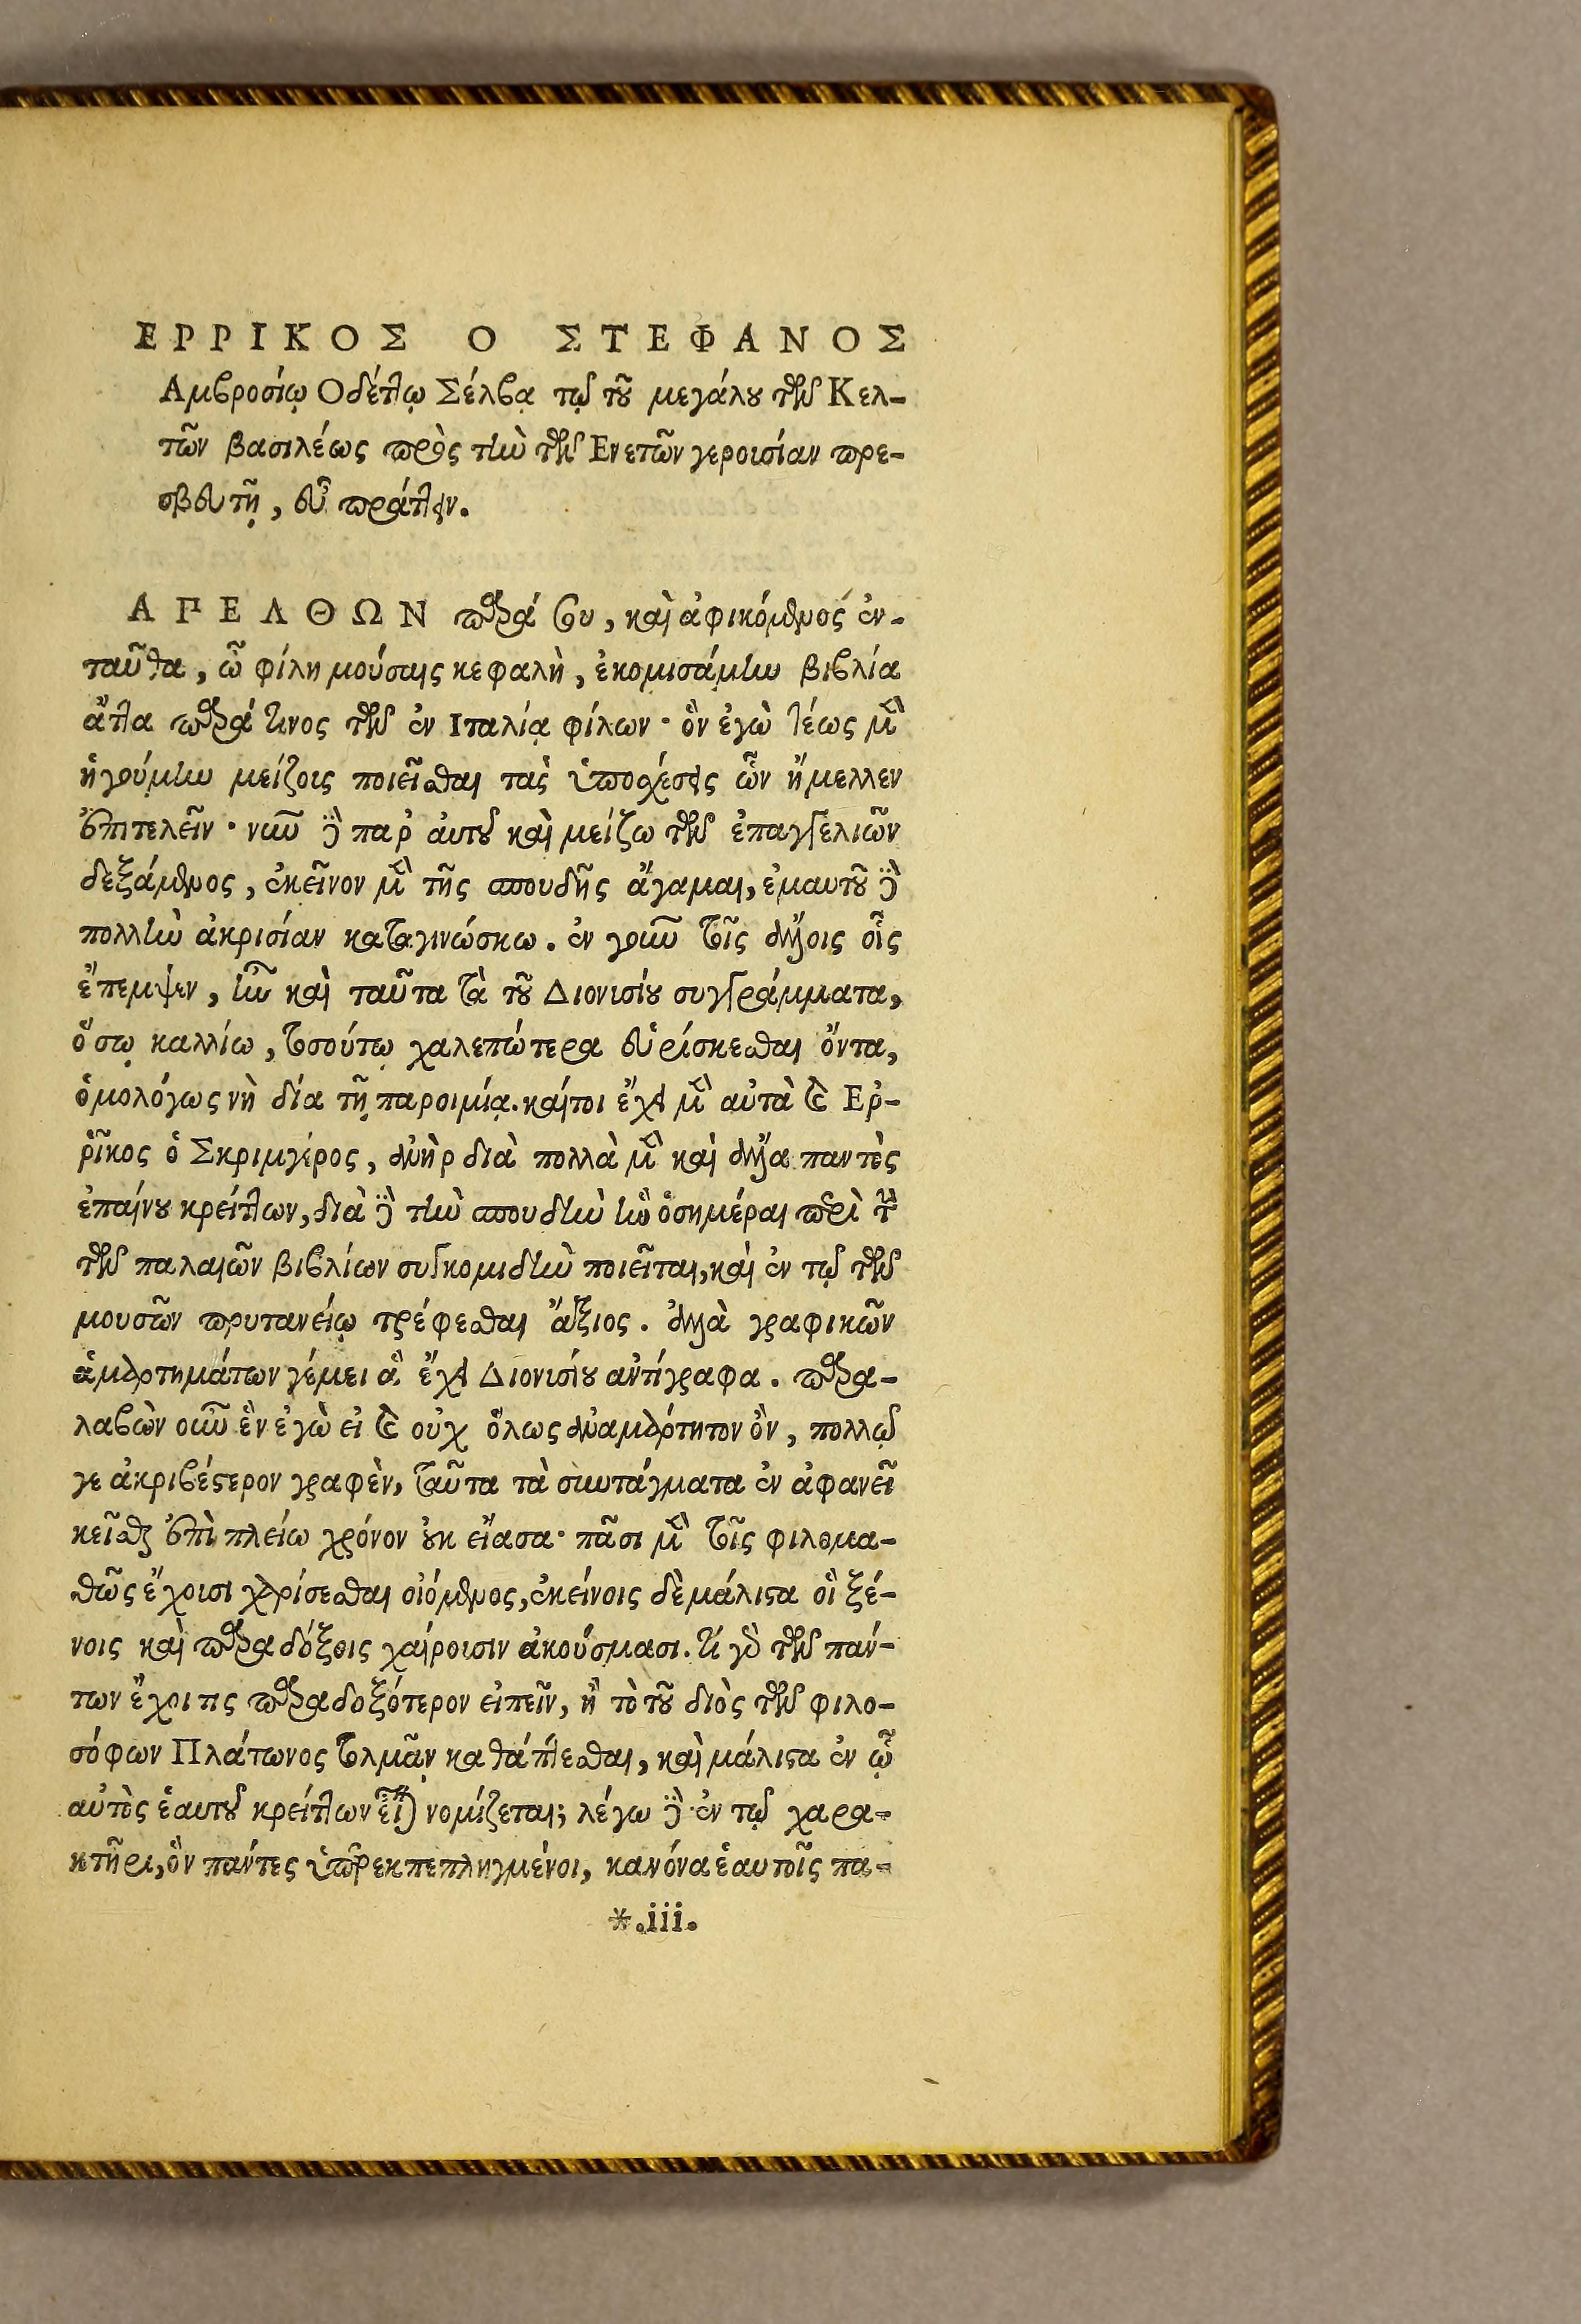 ΕΡΡΙΚΟΣ Ο ΣΤΕΦΑΝΟΣ
Αμβροσίῳ Οδέττῳ Σέλβᾳ τῷ τοῦ μεγάλου τῶν Κελ-
τῶν βασιλέως πρὸς τὴν τῶν Ενετῶν γερουσίαν πρε-
σβευτῇ, εὖ πράττειν.
ΑΠΕΛΘΩΝ παρά σου, καὶ ἀφικόμενος ἐν-
ταῦθα, ὦ φίλη μούσαις κεφαλὴ, ἐκομισάμην βιβλία
ἄττα παρά τινος τῶν ἐν Ιταλίᾳ φίλων· ὃν ἐγὼ τέως μὲν
ἡγούμην μείζους ποιεῖσθαι τὰς ὑποσχέσεις ὧν ἤμελλεν
ἐπιτελεῖν· νῦν δὲ παρ' ἀυτοῦ καὶ μείζω τῶν ἐπαγγελιῶν
δεξάμενος, ἐκεῖνον μὲν τῆς σπουδῆς ἄγαμαι, ἐμαυτοῦ δὲ
πολλὴν ἀκρισίαν καταγινώσκω. ἐν γοῦν τοῖς ἄλλοις οἷς
ἔπεμψεν, ἦν καὶ ταῦτα τὰ τοῦ Διονυσίου συγγράμματα,
ὅσῳ καλλίω, τοσούτῳ χαλεπώτερα εὑρίσκεσθαι ὄντα,
ὁμολόγως νὴ δία τῇ παροιμίᾳ. καίτοι ἔχει μὲν αὐτὰ καὶ Ερ-
ρῖκος ὁ Σκριμγέρος, ἀνὴρ διὰ πολλὰ μὲν καὶ ἄλλα παντὸς
ἐπαίνου κρείττων, διὰ δὲ τὴν σπουδὴν ἣν ὁσημέραι περὶ τὴν
τῶν παλαιῶν βιβλίων συγκομιδὴν ποιεῖται, καὶ ἐν τῷ τῶν
μουσῶν πρυτανείῳ τρέφεσθαι ἄξιος. ἀλλὰ γραφικῶν
ἁμαρτημάτων γέμει ἃ ἔχει Διονυσίου αντίγραφα. παρα-
λαβὼν οὖν ἓν ἐγὼ εἰ καὶ οὐχ ὅλως ἀναμάρτητον ὂν, πολλῷ
γε ἀκριβέστερον γραφὲν, ταῦτα τὰ συντάγματα ἐν ἀφανεῖ
κεῖσθαι ἐπὶ πλείω χρόνον οὐκ εἴασα· πᾶσι μὲν τοῖς φιλομα-
θῶς ἔχουσι χαρίσεσθαι οἰόμενος, ἐκείνοις δὲ μάλιστα οἳ ξέ-
νοις καὶ παραδόξοις χαίρουσιν ἀκούσμασι. τί γὰρ τῶν πάν-
των ἔχοι τις παραδοξότερον εἰπεῖν, ἢ τὸ τοῦ διὸς τῶν φιλο-
σόφων Πλάτωνος τολμᾷν καθάπτεσθαι, καὶ μάλιστα ἐν ᾧ
αὐτὸς ἑαυτοῦ κρείττων εἶναι νομίζεται; λέγω δὲ ἐν τῷ χαρα-
κτῆρι, ὃν πάντες ὑπερεκπεπληγμένοι, κανόνα ἑαυτοῖς πα-
*.iii.